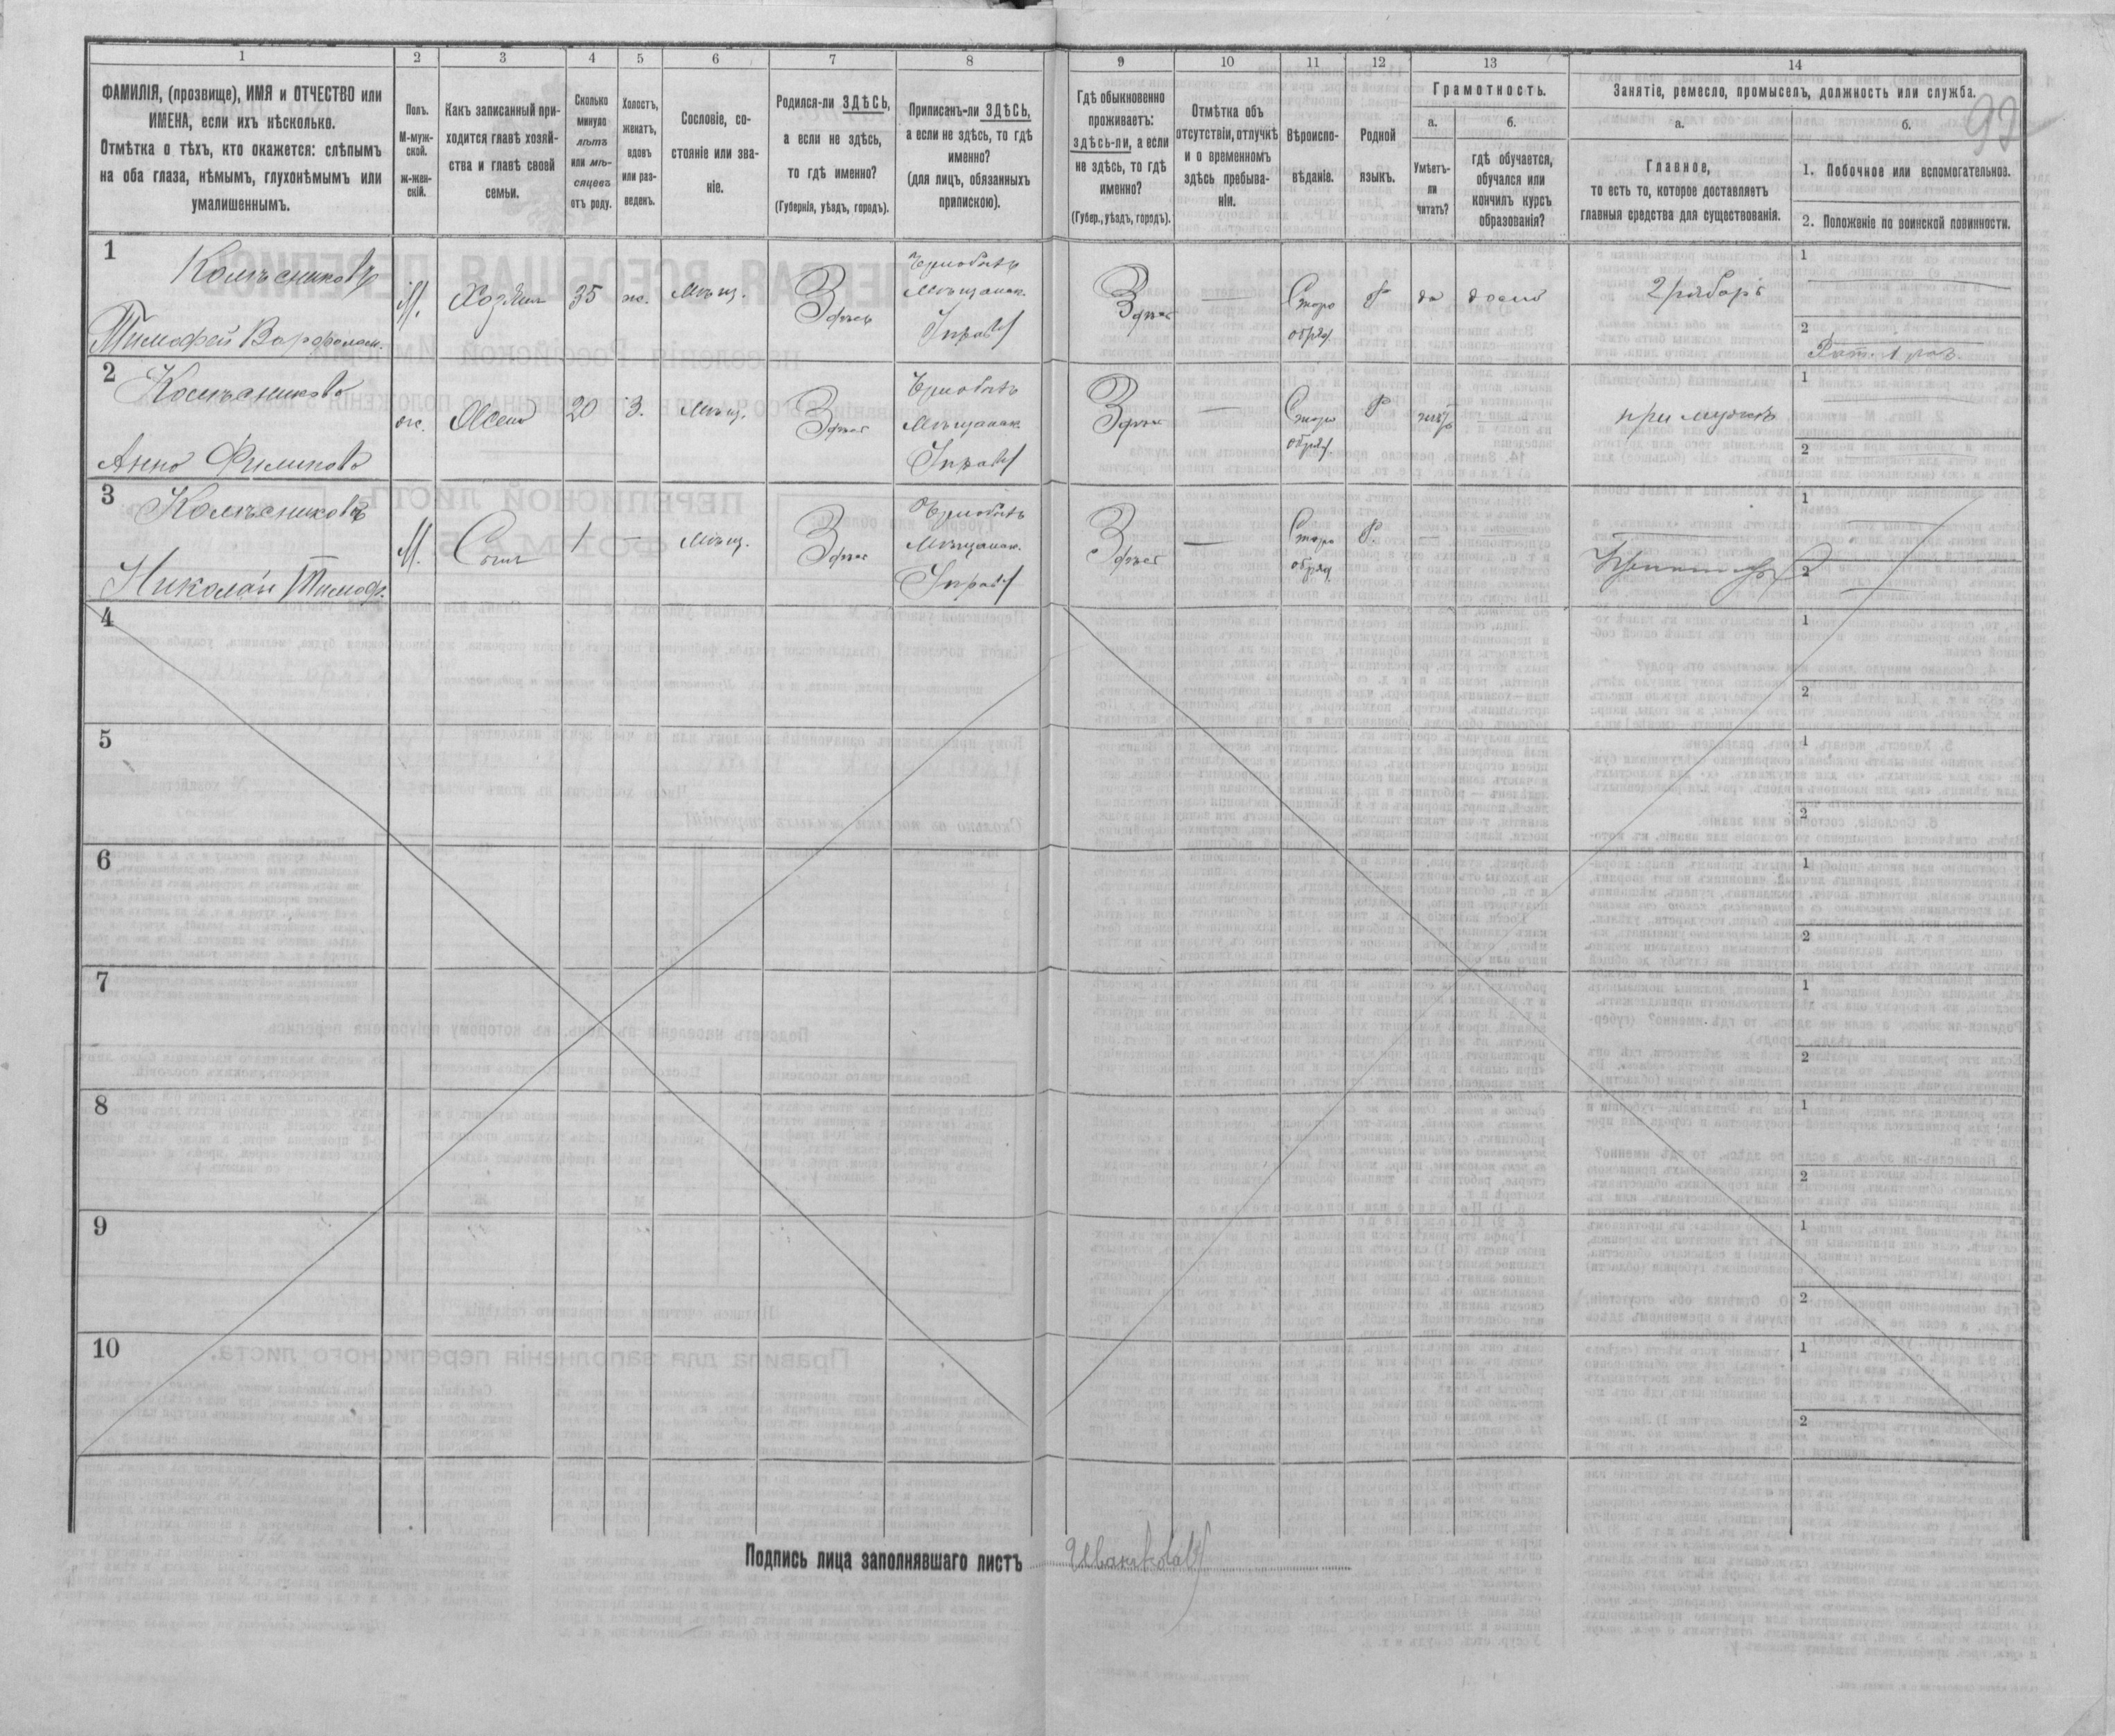 1
2
3
4
5
6
7
8
9
10
11
12
13
14
ФАМИЛІЯ, (прозвище), ИМЯ и ОТЧЕСТВО или
ИМЕНА, если ихъ нѣсколько.
Отмѣтка о тѣхъ, кто окажется: слѣпымъ
на оба глаза, нѣмымъ, глухонѣмымъ или
умалишеннымъ.
Полъ.
М-муж-
ской.
Ж-жен-
скій.
Какъ записанный при-
ходится главѣ хозяй-
ства и главѣ своей
семьи.
Сколько
минуло
лѣтъ
или мѣ-
сяцевъ
отъ роду.
Холостъ,
женатъ,
вдовъ
или раз-
веденъ.
Сословіе, со-
стояніе или зва-
ніе.
Родился-ли ЗДѢСЬ,
а если не здѣсь,
то гдѣ именно?
(Губернія, уѣздъ, городъ).
Приписанъ-ли ЗДѢСЬ,
а если не здѣсь, то гдѣ
именно?
(для лицъ, обязанныхъ
припискою).
Гдѣ обыкновенно
проживаетъ:
здѣсь-ли, а если
не здѣсь, то гдѣ
именно?
(Губер., уѣздъ, городъ).
Отмѣтка объ
отсутствіи, отлучкѣ
и о временномъ
здѣсь пребыва-
ніи.
Вѣроиспо-
вѣданіе.
Родной
языкъ.
Грамотность.
а.
Умѣетъ-
ли
читать?
б.
гдѣ обучается,
обучался или
кончилъ курсъ
образованія?
Занятіе, ремесло, промыселъ, должность или служба.
а.
Главное,
то есть то, которое доставляетъ
главныя средства для существованія.
б.
1. Побочное или вспомогательное.
2. Положеніе по воинской повинности.
99
1
Колѣсниковъ
Тимофей Варфолом.
М. Хозяин 35 ж. Мѣщ. Здѣсь
Мѣщанск.
Управ
Здѣсь — Старо
обряд Р да дома
1
2
2
Колѣсникова
Анна Филипова
ж. Жена 20 З. Мѣщ. Здѣсь
Мѣщанск.
Управ
Здѣсь — Старо
обряд. Р нѣтъ — при мужѣ
1
2
3
Колѣсниковъ
Николай Тимоф.
М. Сынъ 1 — Мѣщ. Здѣсь
Мѣщанск.
Управ
Здѣсь — Старо
обряд. Р. —
1
2
4
1
2
5
1
2
6
1
2
7
1
2
8
1
2
9
1
2
10
1
2
Подпись лица заполнявшаго листъ